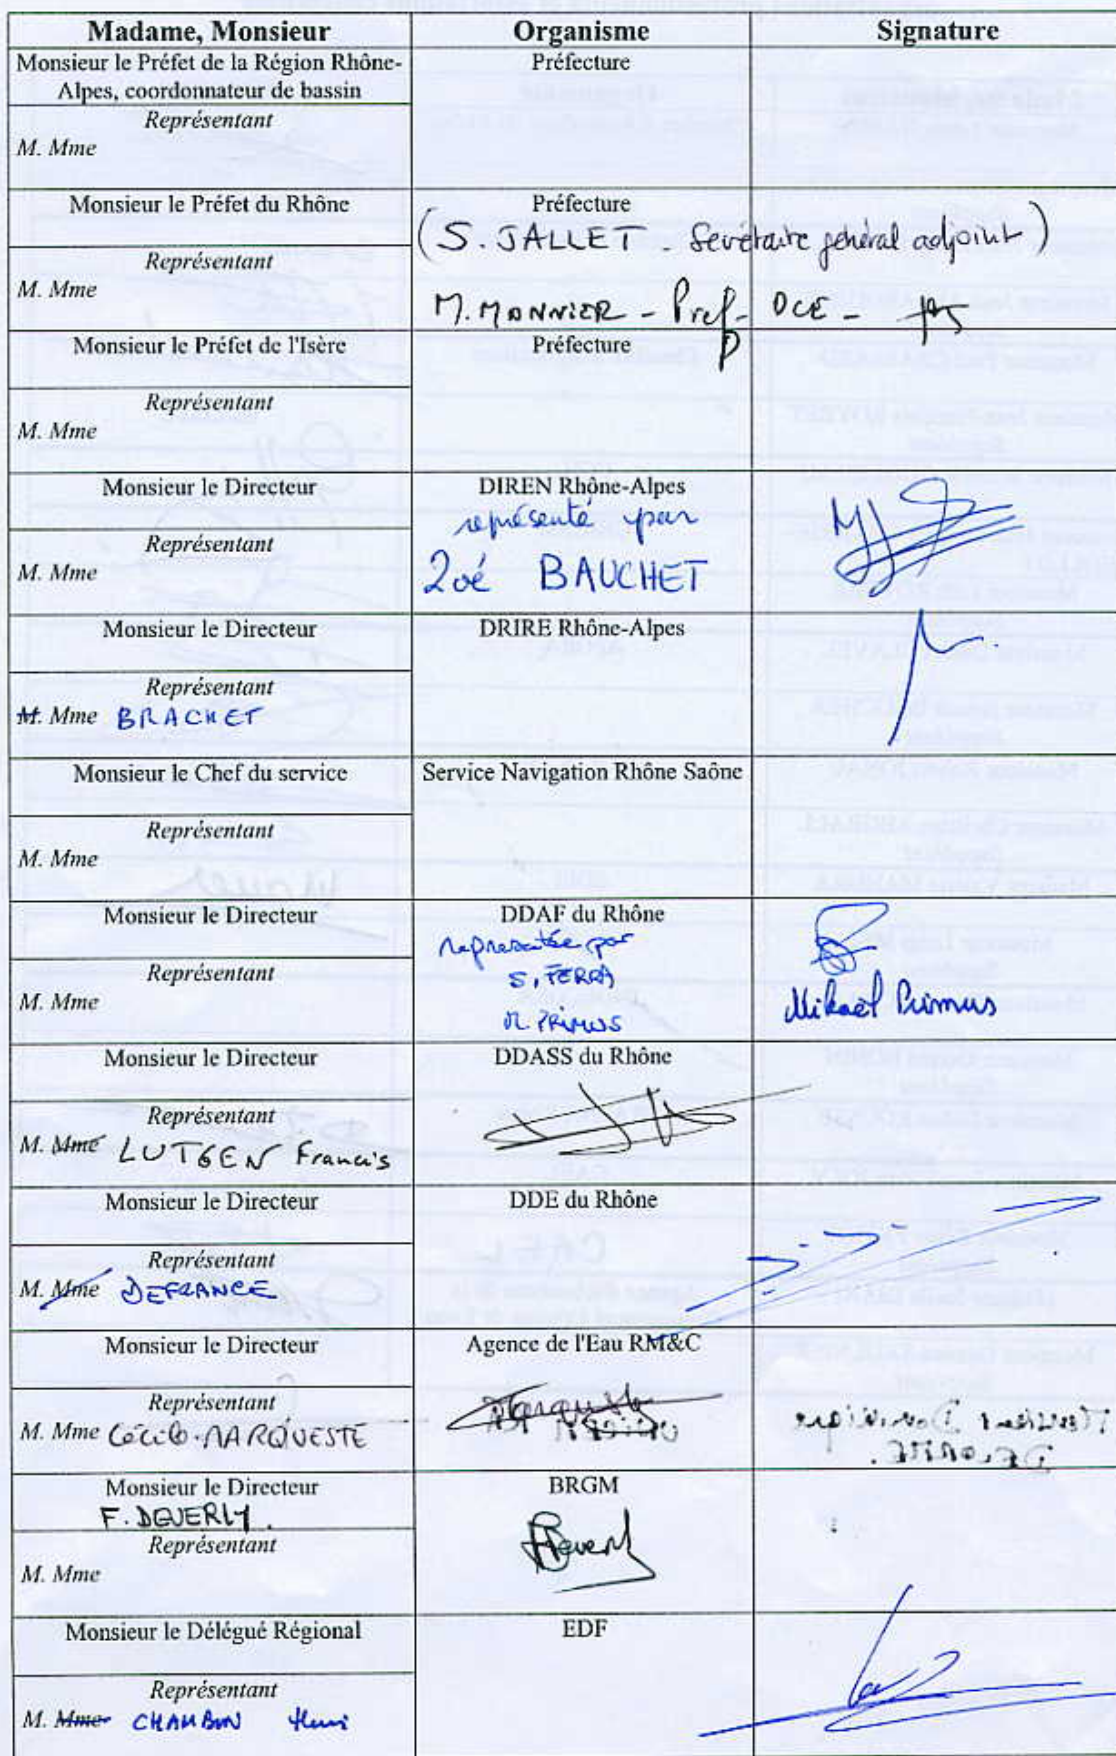 Madame, Monsieur Organisme Signature
Monsieur le Préfet de la Région Rhône- Préfecture
Alpes, coordonnateur de bassin
Représentant
M. Mme
Monsieur le Préfet du Rhône Préfecture
(S. JALLET - Secrétaire général adjoint)
Représentant
M. Mme
M. MONNIER - Pref - DCE -
Monsieur le Préfet de l'Isère Préfecture
Représentant
M. Mme
Monsieur le Directeur DIREN Rhône-Alpes
représenté par
Représentant
M. Mme Zoé BAUCHET
Monsieur le Directeur DRIRE Rhône-Alpes
Représentant
M. Mme BRACHET
Monsieur le Chef du service Service Navigation Rhône Saône
Représentant
M. Mme
Monsieur le Directeur DDAF du Rhône
représentée par
Représentant S. FERRA
M. Mme Mikael Primus
M. PRIMUS
Monsieur le Directeur DDASS du Rhône
Représentant
M. Mme LUTGEN Francis
Monsieur le Directeur DDE du Rhône
Représentant
M. Mme DEFRANCE
Monsieur le Directeur Agence de l'Eau RM&C
Représentant
M. Mme Cécile MARQUESTE
Monsieur le Directeur BRGM
F. DEVERLY.
Représentant
M. Mme
Monsieur le Délégué Régional EDF
Représentant
M. Mme CHAMBON Henri